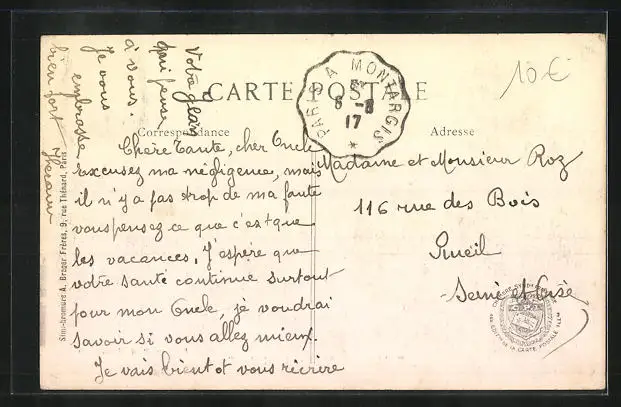 CARTE POSTALE
Correspondance
Adresse
PARIS A MONTARGIS
6 -8
17
10€
Chère Tante, cher Oncle
excusez ma négligence, mais
il n'y a pas trop de ma faute
vous pensez ce que c'est que
les vacances, J'espère que
votre santé continue surtout
pour mon Oncle, je voudrai
savoir si vous allez mieux.
Je vais bientot vous réécrire
Votre
qui pense
à vous.
Je vous
embrasse
bien fort
Madame et Monsieur Roz
116 rue des Bois
Seine et Oise
Simi-bromure A. Breger Frères, 9, rue Thénard, Paris
CHAMBRE SYNDICALE
DE LA CARTE POSTALE ILL